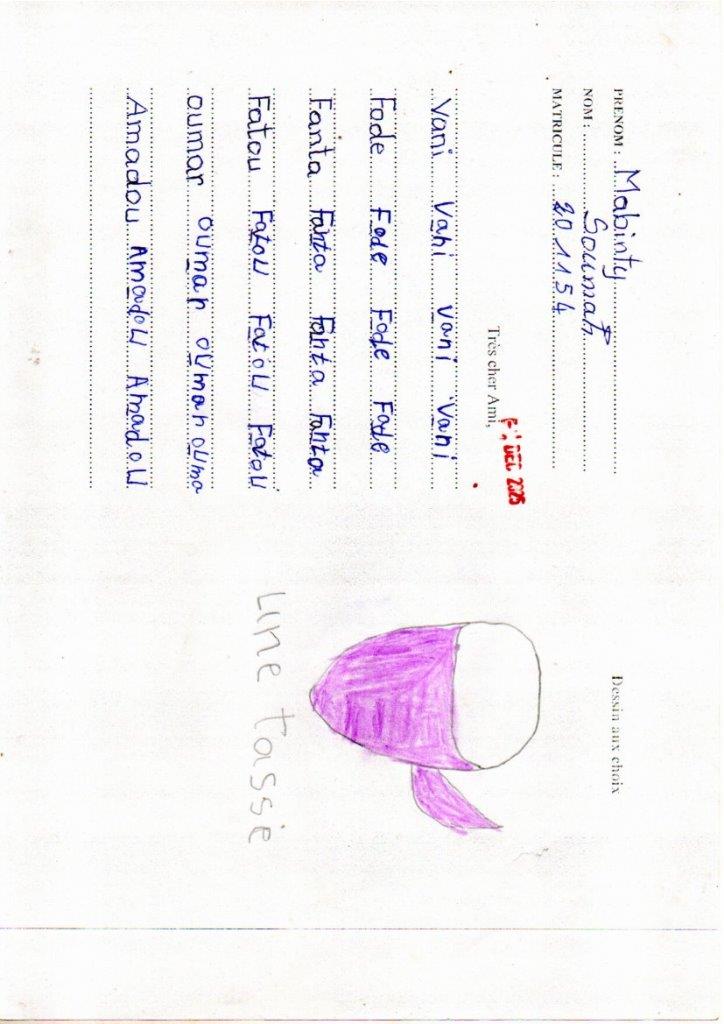 PRENOM : Mabinty
NOM : Soumah
MATRICULE : 201154
Très cher Ami,
DEC 2025
Vani Vani Vani Vani
Fode Fode Fode Fode
Fanta Fanta Fanta Fanta
Fatou Fatou Fatou Fatou
oumar oumar oumar ouma
Amadou Amadou Amadou
Dessin aux choix
une tasse